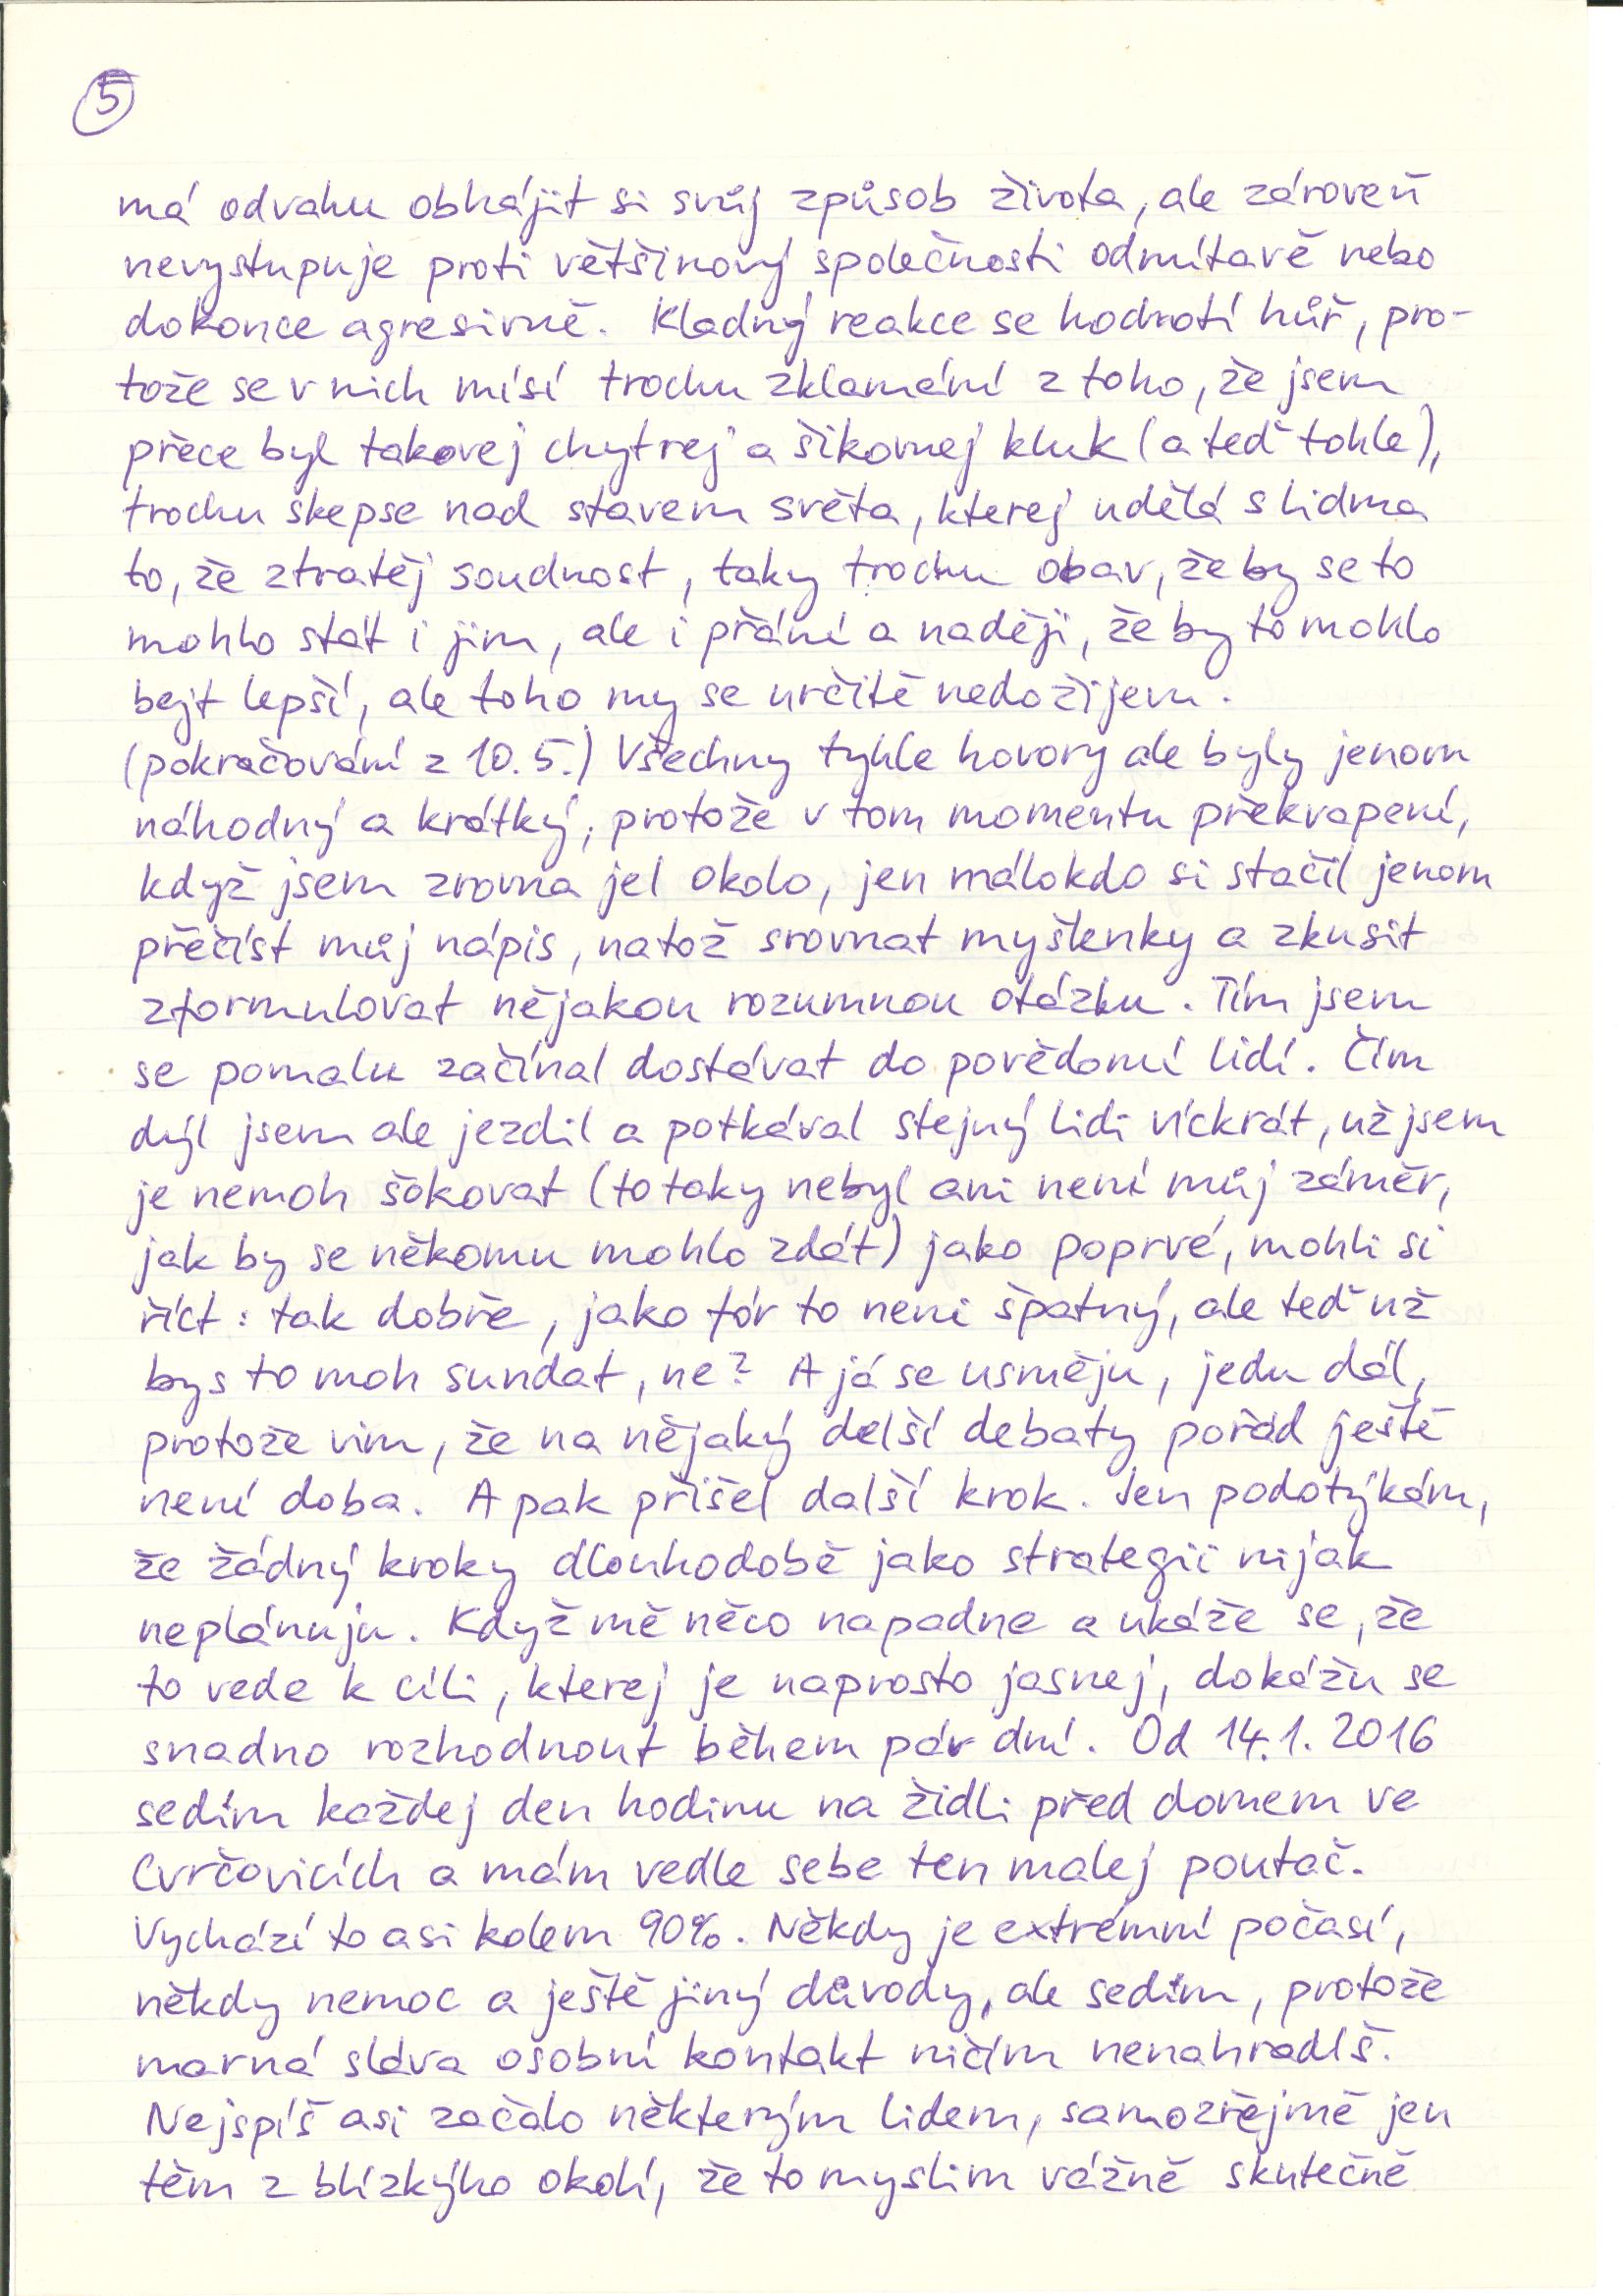 5
má odvahu obhájit si svůj způsob života, ale zároveň
nevystupuje proti většinový společnosti odmítavě nebo
dokonce agresivně. Kladný reakce se hodnotí hůř, pro-
tože se v nich mísí trochu zklamání z toho, že jsem
přece byl takovej chytrej a šikovnej kluk (a teď tohle),
trochu skepse nad stavem světa, kterej udělá s lidma
to, že ztratěj soudnost, taky trochu obav, že by se to
mohlo stát i jim, ale i přání a naději, že by to mohlo
bejt lepší, ale toho my se určitě nedožijem.
(pokračování z 10.5.) Všechny tyhle hovory ale byly jenom
náhodný a krátký, protože v tom momentu překvapení,
když jsem zrovna jel okolo, jen málokdo si stačil jenom
přečíst můj nápis, natož srovnat myšlenky a zkusit
zformulovat nějakou rozumnou otázku. Tím jsem
se pomalu začínal dostávat do povědomí lidí. Čím
dýl jsem ale jezdil a potkával stejný lidi víckrát, už jsem
je nemoh šokovat (to taky nebyl ani není můj záměr,
jak by se někomu mohlo zdát) jako poprvé, mohli si
říct: tak dobře, jako fór to neni špatný, ale teď už
bys to moh sundat, ne? A já se usměju, jedu dál,
protože vim, že na nějaký delší debaty pořád ještě
není doba. A pak přišel další krok. Jen podotýkám,
že žádný kroky dlouhodobě jako strategii nijak
neplánuju. Když mě něco napadne a ukáže se, že
to vede k cíli, kterej je naprosto jasnej, dokážu se
snadno rozhodnout během pár dní. Od 14.1. 2016
sedím každej den hodinu na židli před domem ve
Cvrčovicích a mám vedle sebe ten malej poutač.
Vychází to asi kolem 90%. Někdy je extrémní počasí,
někdy nemoc a ještě jiný důvody, ale sedím, protože
marná sláva osobní kontakt ničím nenahradíš.
Nejspíš asi začalo některým lidem, samozřejmě jen
těm z blízkýho okolí, že to myslim vážně skutečně